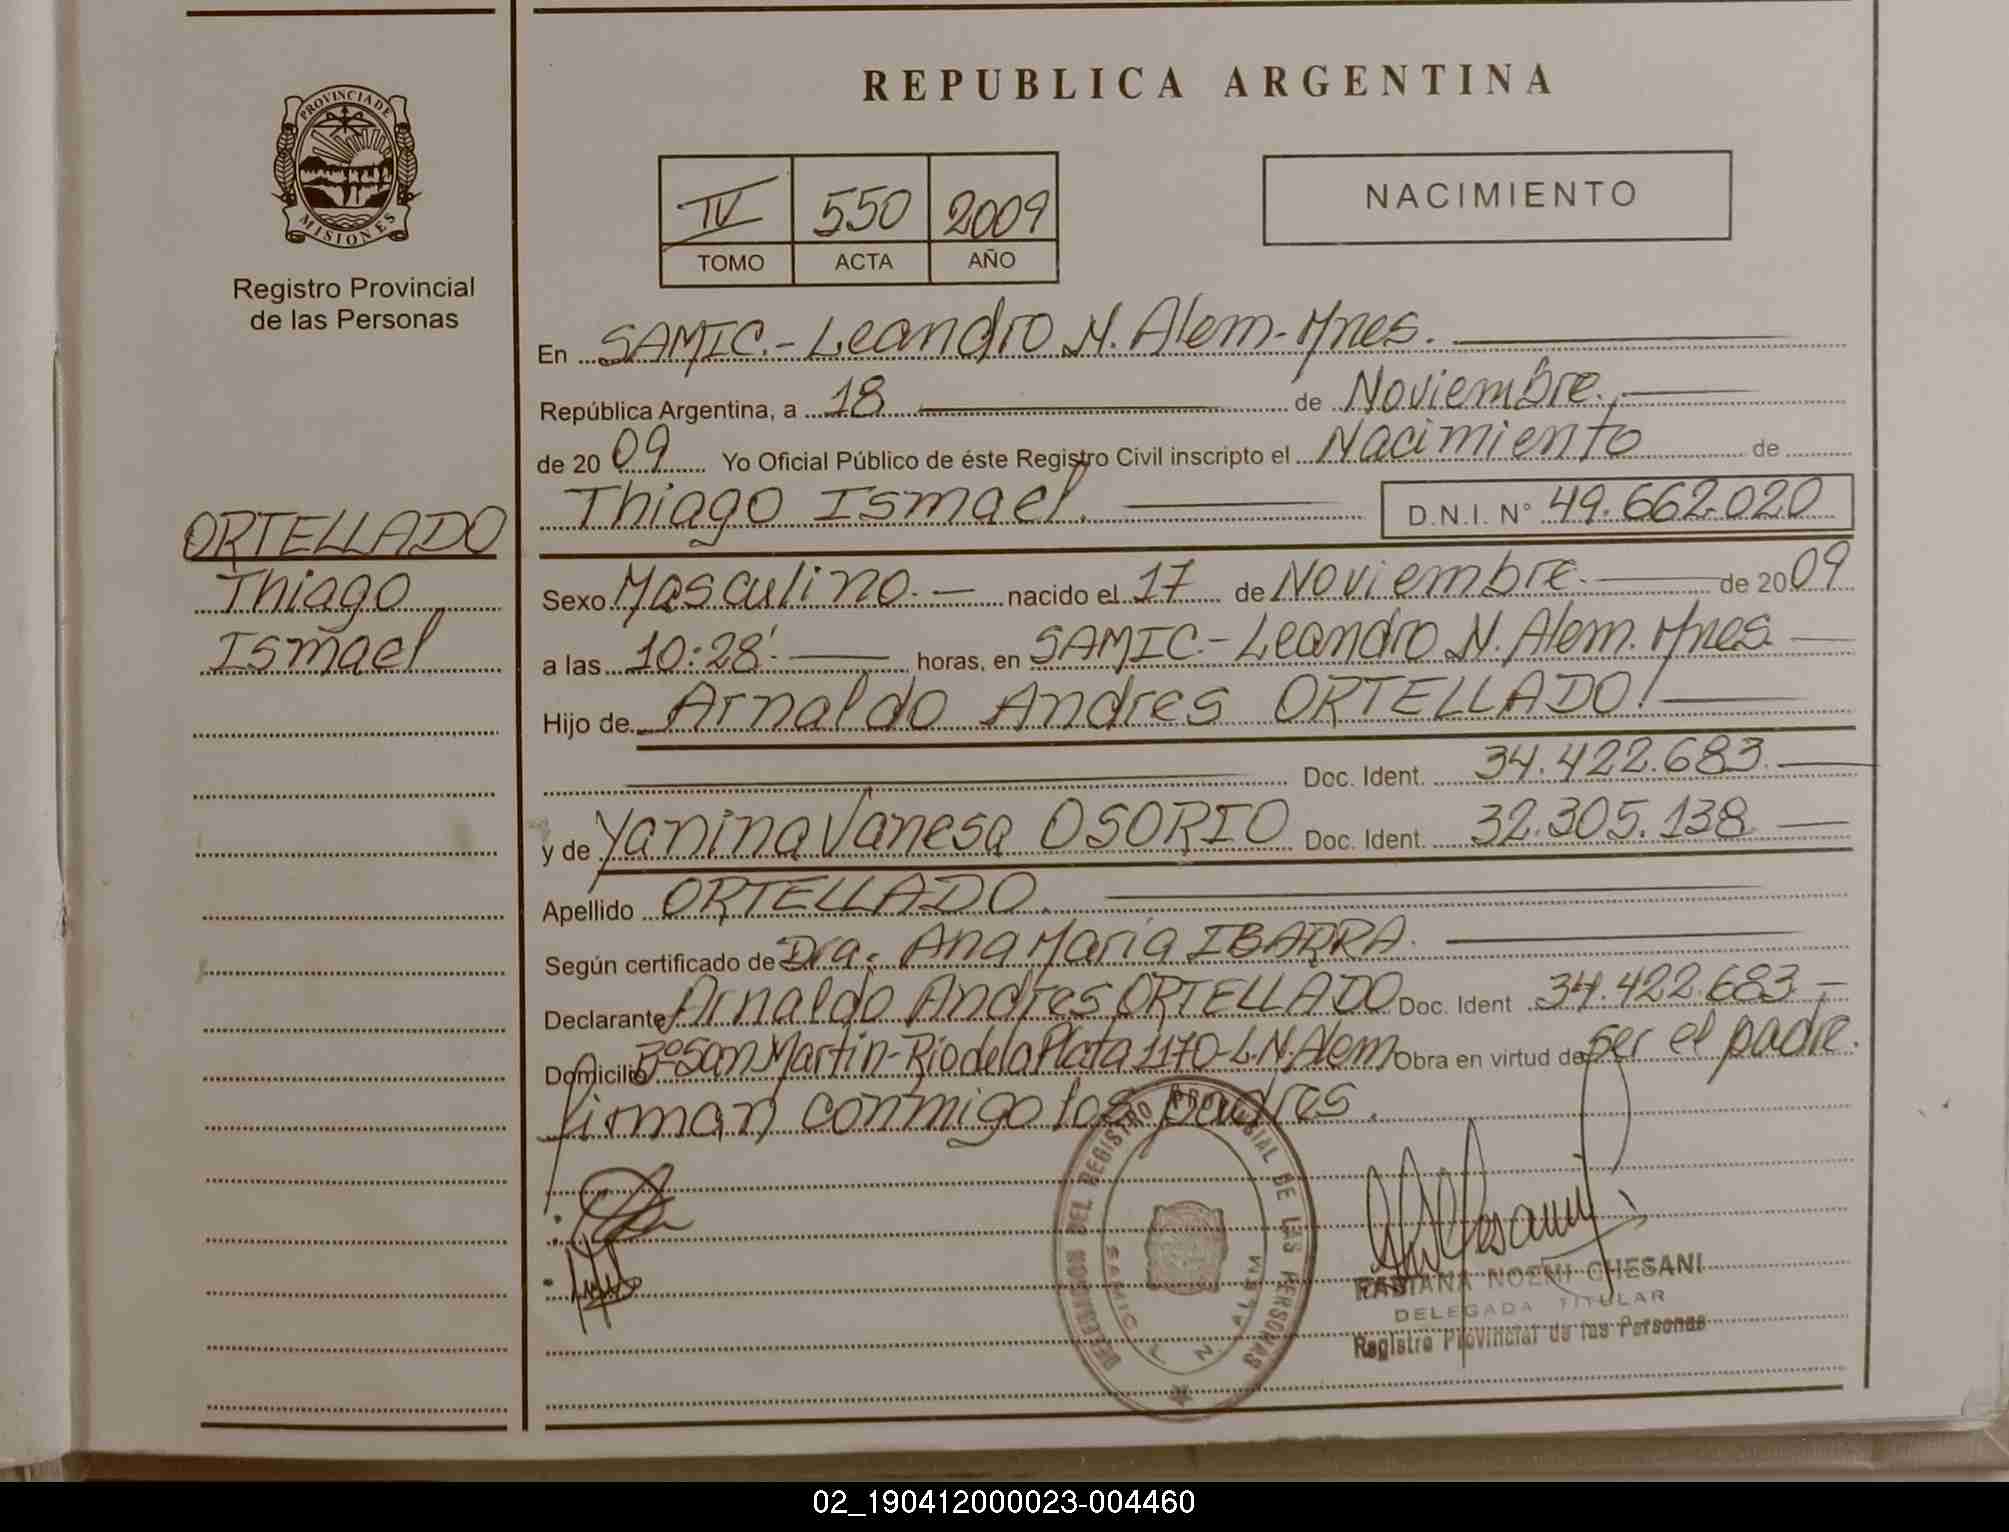 REPUBLICA ARGENTINA
PROVINCIA DE
MISIONES
Registro Provincial
de las Personas
IV 550 2009
TOMO ACTA AÑO
NACIMIENTO
En SAMIC.- Leandro N. Alem - Mnes.
República Argentina, a 18 de Noviembre.
de 20 09 Yo Oficial Público de éste Registro Civil inscripto el Nacimiento de
Thiago Ismael. D.N.I. N° 49.662.020
ORTELLADO
Thiago
Ismael
Sexo Masculino.- nacido el 17 de Noviembre. de 20 09
a las 10:28'. horas, en SAMIC.- Leandro N. Alem. Mnes.
Hijo de Arnaldo Andres ORTELLADO!
Doc. Ident. 34.422.683.
y de Yanina Vanesa OSORIO Doc. Ident. 32.305.138
Apellido ORTELLADO.
Según certificado de Dra. Ana Maria IBARRA.
Declarante Arnaldo Andres ORTELLADO Doc. Ident 34.422.683 -
Domicilio B° San Martin - Rio de la Plata 1170 - L.N. Alem Obra en virtud de ser el padre.
firman conmigo los padres.
DEL REGISTRO PROVINCIAL DE LAS PERSONAS
SAMIC L. N. ALEM
FABIANA NOEMI CHESANI
DELEGADA TITULAR
Registro Provincial de las Personas
02_190412000023-004460